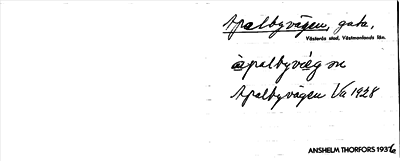 Apalbyvägen, gata,
Västerås stad, Västmanlands län.
àpalbyvä̀g en
Apalbyvägen Va 1928
ANSHELM THORFORS 1936